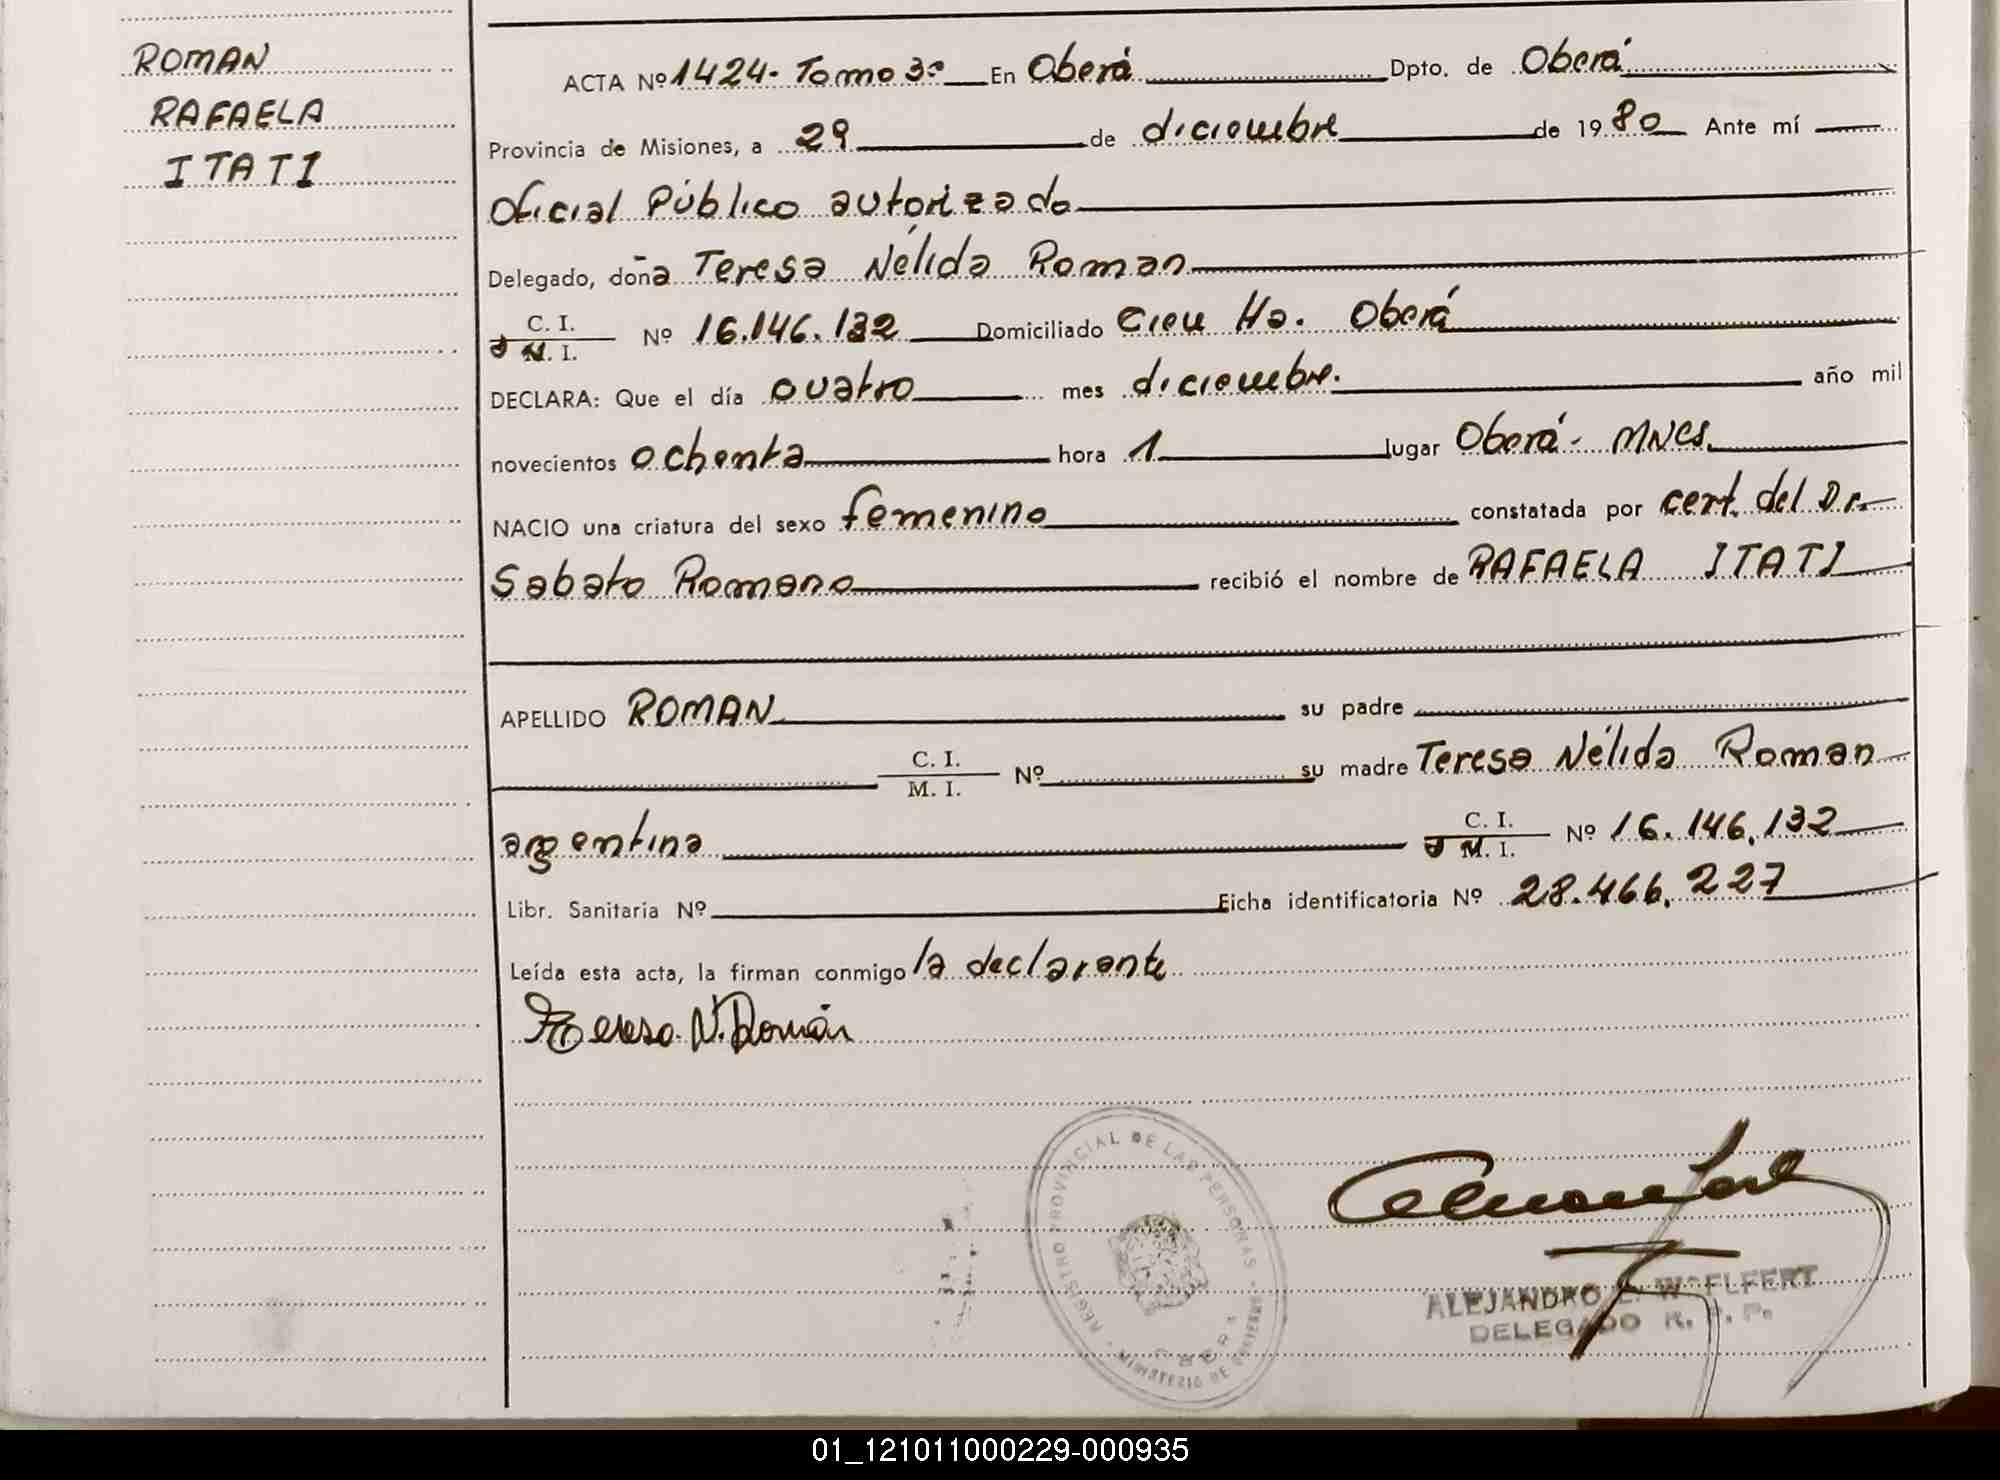 ROMAN
RAFAELA
ITATI
ACTA Nº 1424- Tomo 3º En Oberá Dpto. de Oberá
Provincia de Misiones, a 29 de diciembre de 1980 Ante mí
Oficial Público autorizado
Delegado, doña Teresa Nélida Roman
C. I.
M. I.
Nº 16.146.132 Domiciliado Oberá
DECLARA: Que el día cuatro mes diciembre. año mil
novecientos ochenta hora 1 lugar Oberá- MNES
NACIO una criatura del sexo femenino constatada por cert. del Dr.
Sabato Romano recibió el nombre de RAFAELA ITATI
APELLIDO ROMAN su padre
C. I.
M. I.
Nº su madre Teresa Nélida Roman
argentina C. I.
M. I.
Nº 16.146.132
Libr. Sanitaria Nº Ficha identificatoria Nº 28.466.227
Leída esta acta, la firman conmigo la declarante
Teresa N. Román
REGISTRO PROVINCIAL DE LAS PERSONAS
OBERA
MINISTERIO DE GOBIERNO
ALEJANDRO
DELEGADO R. P. P.
01_121011000229-000935